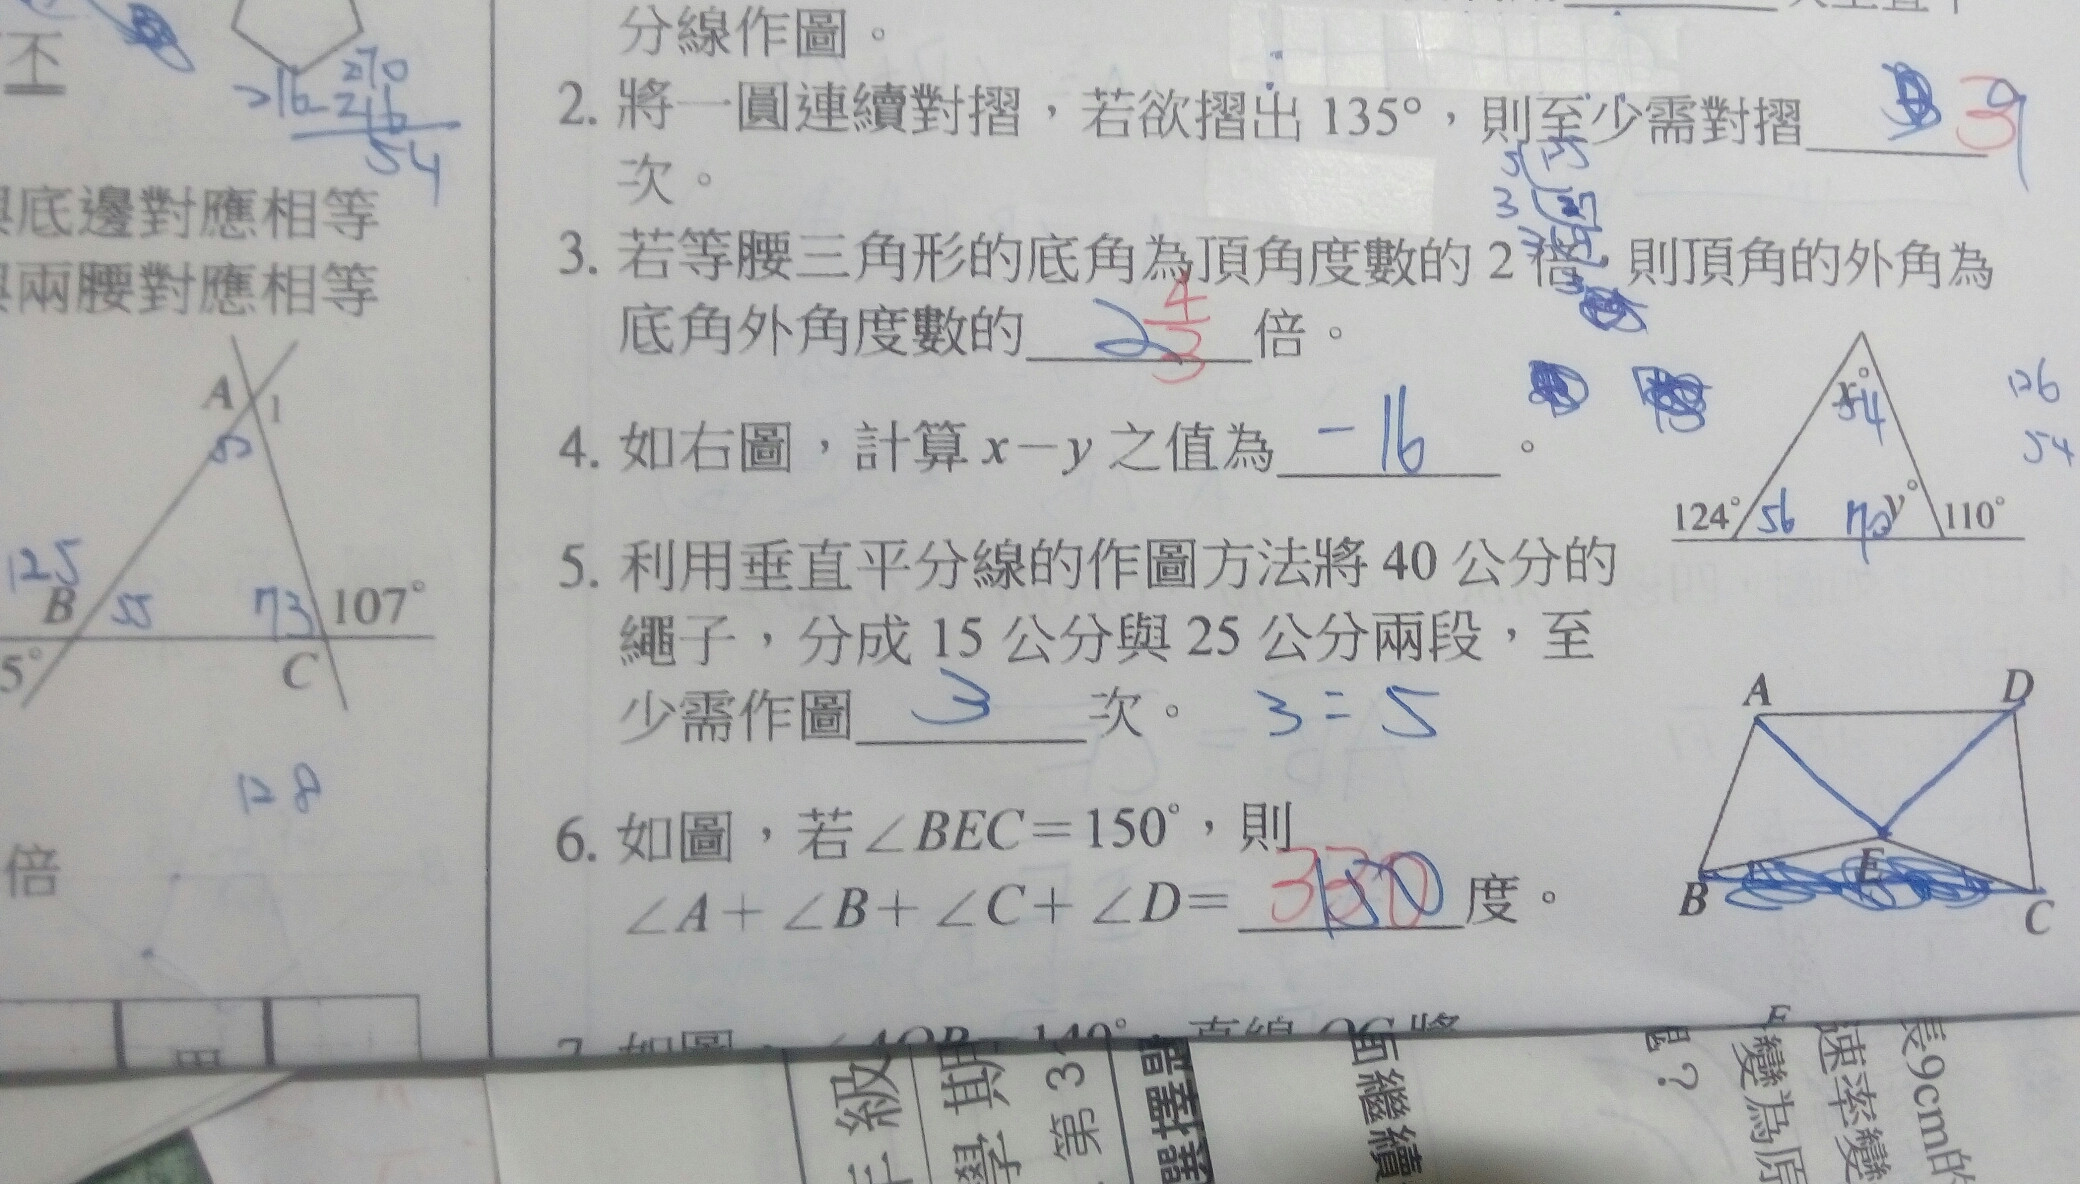 不
270
216
216
54
底邊對應相等
兩腰對應相等
A
1
52
125
B
55
73
107°
5°
C
128
倍
分線作圖。
2. 將一圓連續對摺,若欲摺出 135°,則至少需對摺 3
次。
3. 若等腰三角形的底角為頂角度數的 2 倍 則頂角的外角為
底角外角度數的 2 4/3 倍。
4. 如右圖,計算 x-y 之值為 -16 。
x°
54
126
54
124°
56
70
y°
110°
5. 利用垂直平分線的作圖方法將 40 公分的
繩子,分成 15 公分與 25 公分兩段,至
少需作圖 3 次。 3:5
6. 如圖,若∠BEC=150°,則
∠A+∠B+∠C+∠D= 330 度。
A
D
B
E
C
7. 如圖
級
第 3
選擇題
面繼續
?
變為原
速率變
長9cm的